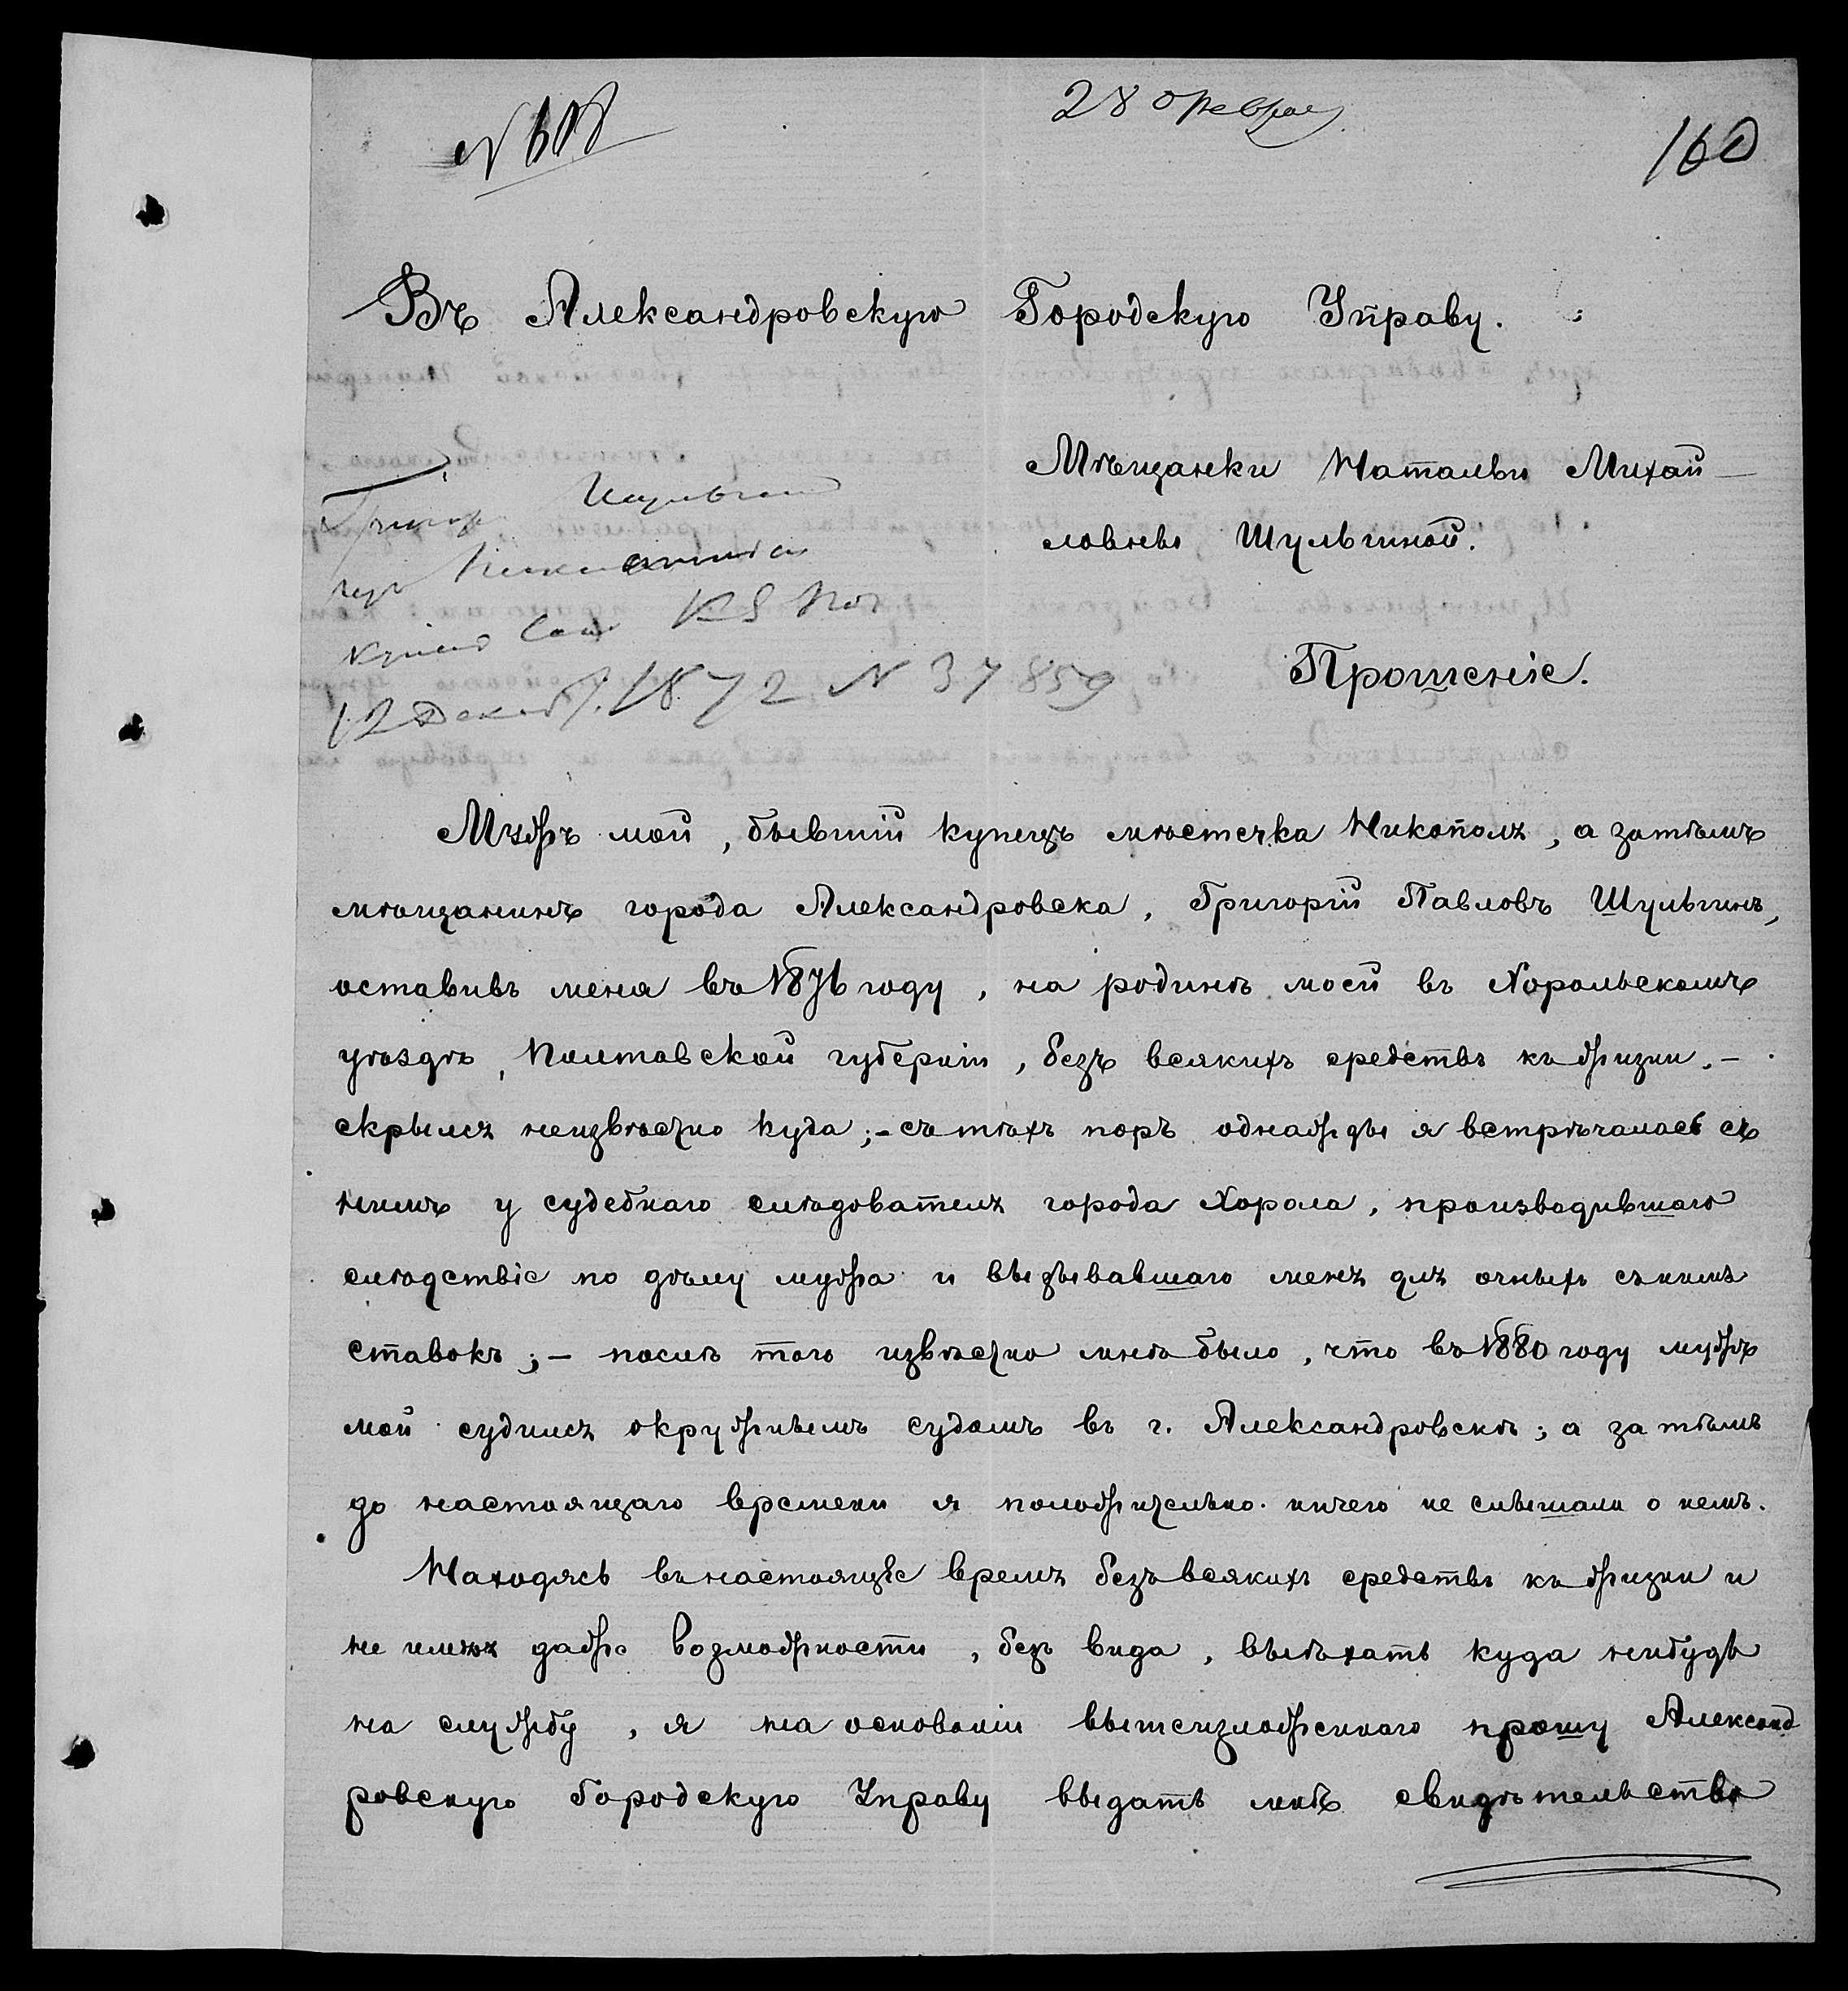 28 Февраля
160
Въ Александровскую Городскую Управу.
Мѣщанки Натальи Михай-
ловневы Шульгиной.
Прошеніе.
12 Декаб. 1872 N 37859
Мужъ мой, бывшій купецъ мѣстечка Никополя, а затѣмъ
мѣщанинъ города Александровска, Григорій Павловъ Шульгинъ,
оставивъ меня въ 1876 году, на родинѣ моей въ Хорольскомъ
уѣздѣ, Полтавской губерніи, безъ всякихъ средствъ къ жизни, –
скрылся неизвѣстно куда; – съ тѣхъ поръ однажды я встрѣчалась съ
нимъ у судебнаго слѣдователя города Хорола, производившаго
слѣдствіе по дѣлу мужа и вызывавшаго меня для очныхъ съ нимъ
ставокъ; – послѣ того извѣстно мнѣ было, что въ 1880 году мужъ
мой судился окружнымъ судомъ въ г. Александровскѣ; а за тѣмъ
до настоящаго времени я положительно ничего не слышала о немъ.
Находясь въ настоящѣе время безъ всякихъ средствъ къ жизни и
не имѣя даже возможности, безъ вида, выѣхать куда нибудь
на службу, я на основаніи вышеизложеннаго прошу Александ
ровскую Городскую Управу выдать мнѣ свидѣтельство